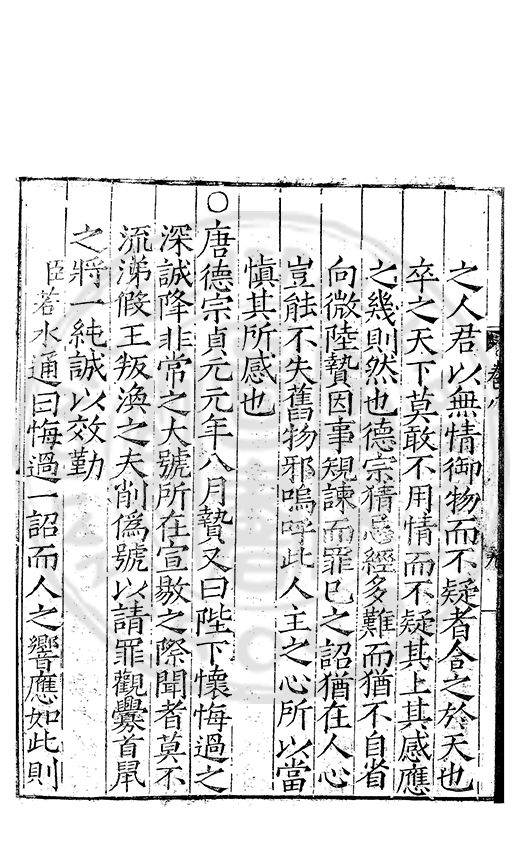 之人君以無情御物而不疑者合之於天也
卒之天下莫敢不用情而不疑其上其感應
之幾則然也德宗猜忌經多難而猶不自省
向微陸贄因事規諫而罪已之詔猶在人心
豈能不失舊物邪嗚呼此人主之心所以當
慎其所感也
○唐德宗貞元元年八月贄又曰陛下懷悔過之
深誠降非常之大號所在宣敭之際聞者莫不
流涕假王叛渙之夫削偽號以請罪觀釁首鼠
之將一純誠以效勤
臣若水通曰悔過一詔而人之響應如此則
卷八
九